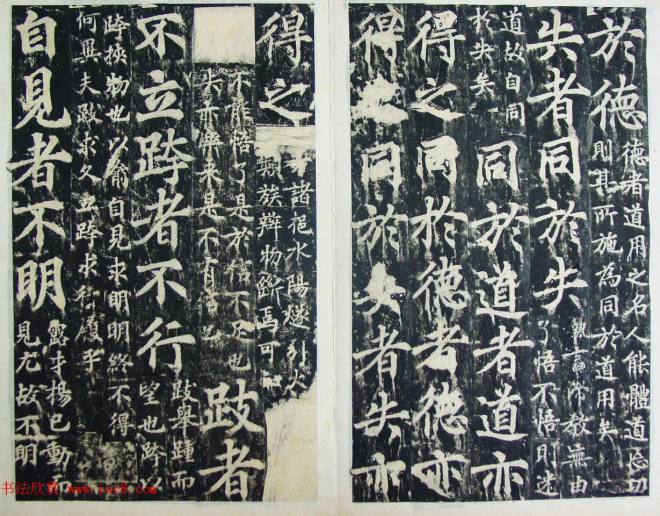 於德
德者道用之名人能體道忘功
則其所施為同於道用矣
失者同於失
執言滯教無由
了悟不悟則迷
道故自同
於失矣
同於道者道亦
得之同於德者德亦
得之同於失者失亦
得之
諸挹水陽燧引火
類族辯物斷焉可
不能悟了是於信不足也
來是不有信也
跂者
不立跨者不行
跂舉踵而
望也跨以
跨挾物也以喻自見求明明終不得
何異夫跂求久立跨求行履乎
自見者不明
露才揚己動
見尤故不明